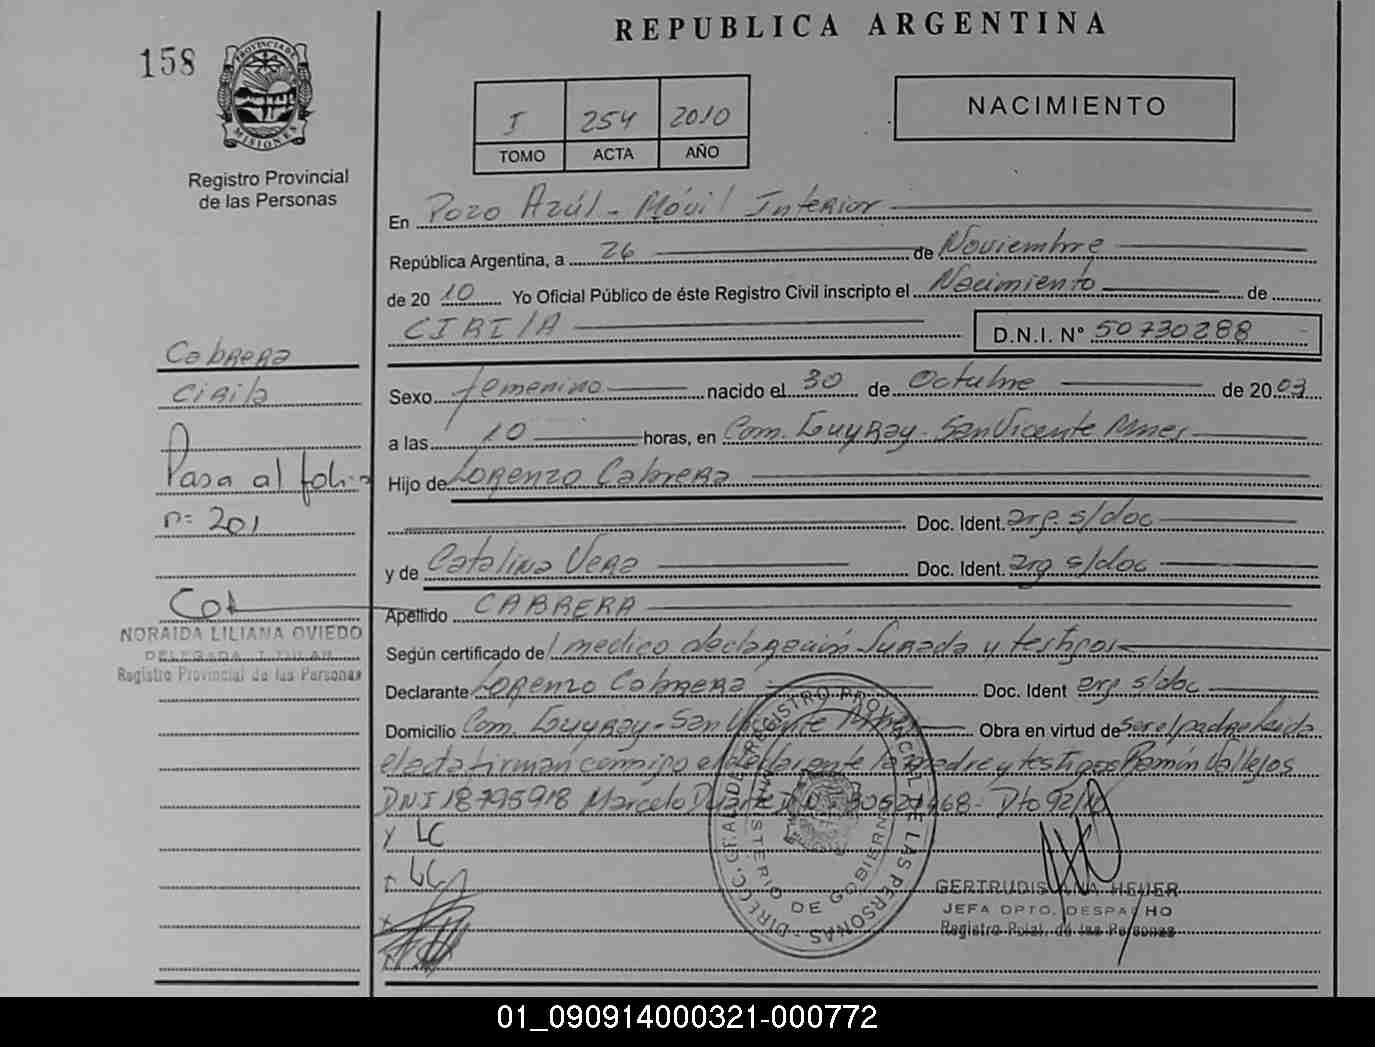 REPUBLICA ARGENTINA
158
PROVINCIA DE MISIONES
Registro Provincial
de las Personas
I 254 2010
TOMO ACTA AÑO
NACIMIENTO
En Pozo Azúl - Móvil Interior
República Argentina, a 26 de Noviembre
de 2010 Yo Oficial Público de éste Registro Civil inscripto el Nacimiento de
CIRILA D.N.I. N° 50730288
Cabrera
Cirila
Pasa al folio
n= 201
NORAIDA LILIANA OVIEDO
DELEGADA TITULAR
Registro Provincial de las Personas
Sexo femenino nacido el 30 de Octubre de 2003
a las 10 horas, en Com. Guyray - San Vicente Mnes
Hijo de Lorenzo Cabrera
Doc. Ident. arg. s/doc
y de Catalina Vera Doc. Ident. arg s/doc
Apellido CABRERA
Según certificado de medico declaración Jurada y testigos
Declarante Lorenzo Cabrera Doc. Ident arg s/doc
Domicilio Com. Guyray - San Vicente Obra en virtud de ser el padre Leida
el acta firman conmigo el declarante la madre y testigos Ramón Vallejos
DNI 18795918 Marcelo Duarte - Dto 92/10
LC
LC
DIRECC. GRAL. DEL REGISTRO PROVINCIAL DE LAS PERSONAS
MINISTERIO DE GOBIERNO
GERTRUDIS ANA HEUER
JEFA DPTO. DESPACHO
Registro Pcial. de las Personas
01_090914000321-000772